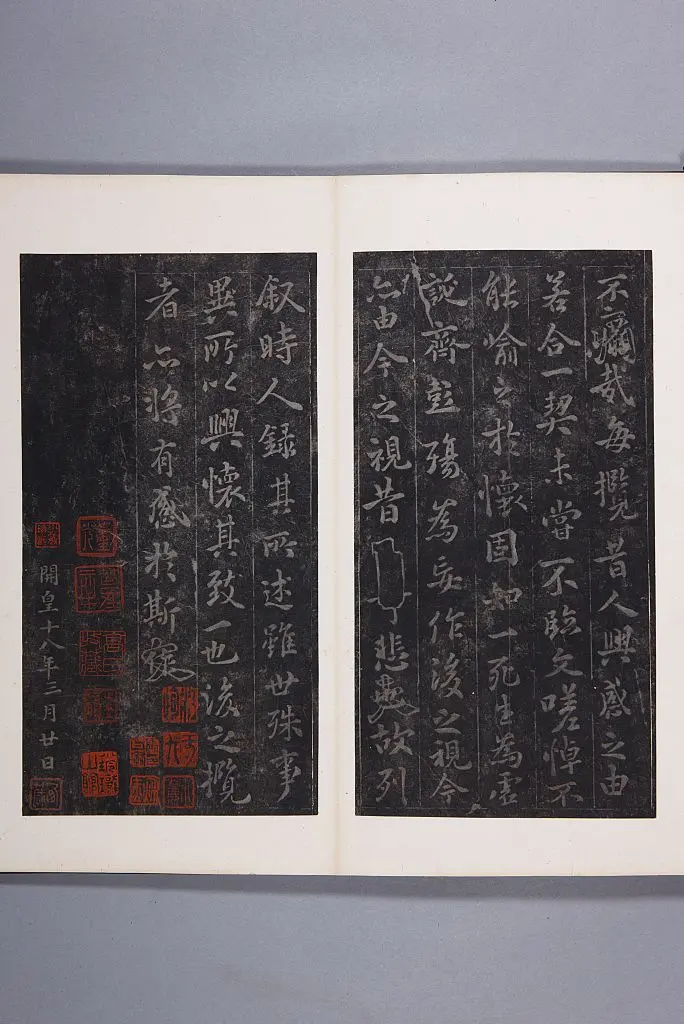 不痛哉每攬昔人興感之由
若合一契未嘗不臨文嗟悼不
能喻之於懷固知一死生為虛
誕齊彭殤為妄作後之視今
亦由今之視昔悲夫故列
叙時人錄其所述雖世殊事
異所以興懷其致一也後之攬
者亦將有感於斯文
開皇十八年三月廿日